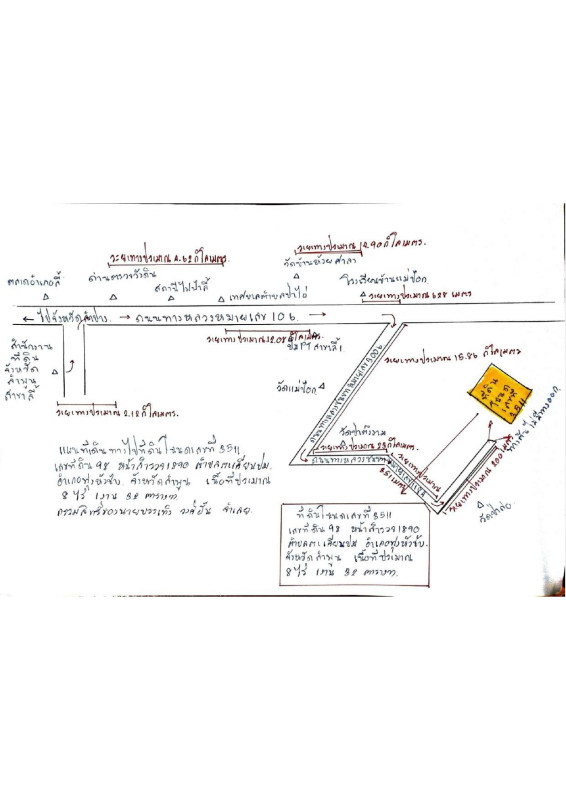 ระยะทางประมาณ 4.62 กิโลเมตร.
ระยะทางประมาณ 12.90 กิโลเมตร.
วัดบ้านห้วยศาลา
ตลาดอำเภอลี้
ด่านตรวจวังดิน
สถานีไฟฟ้าลี้
เทศบาลตำบลป่าไผ่
โรงเรียนบ้านแม่ป๊อก
ระยะทางประมาณ 628 เมตร
← ไปจังหวัดลำปาง. → ถนนทางหลวงหมายเลข 106
สำนักงาน
ที่ดิน
จังหวัด
ลำพูน
สาขาลี้
ระยะทางประมาณ 2.18 กิโลเมตร.
ระยะทางประมาณ 2.08 กิโลเมตร.
ปั๊ม PT สาขาลี้ 1
วัดแม่ป๊อก
ระยะทางประมาณ 15.86 กิโลเมตร
ที่ดิน
โฉนด
เลขที่
3511
ทางตัน ไม่มีทางออก
วัดป่าคำงาม
ถนนทางหลวงชนบท
351 เมตร
ระยะทางประมาณ
ระยะทางประมาณ 200 เมตร
แผนที่เดินทางไปที่ดินโฉนดเลขที่ 3511
เลขที่ดิน 98 หน้าสำรวจ 1890 ตำบลตะเคียนปม.
อำเภอทุ่งหัวช้าง. จังหวัด ลำพูน เนื้อที่ประมาณ
8 ไร่ 1 งาน 32 ตารางวา
ที่ดินโฉนดเลขที่ 3511
เลขที่ดิน 98 หน้าสำรวจ 1890
ตำบลตะเคียนปม อำเภอทุ่งหัวช้าง.
จังหวัด ลำพูน เนื้อที่ประมาณ
8 ไร่ 1 งาน 32 ตารางวา.